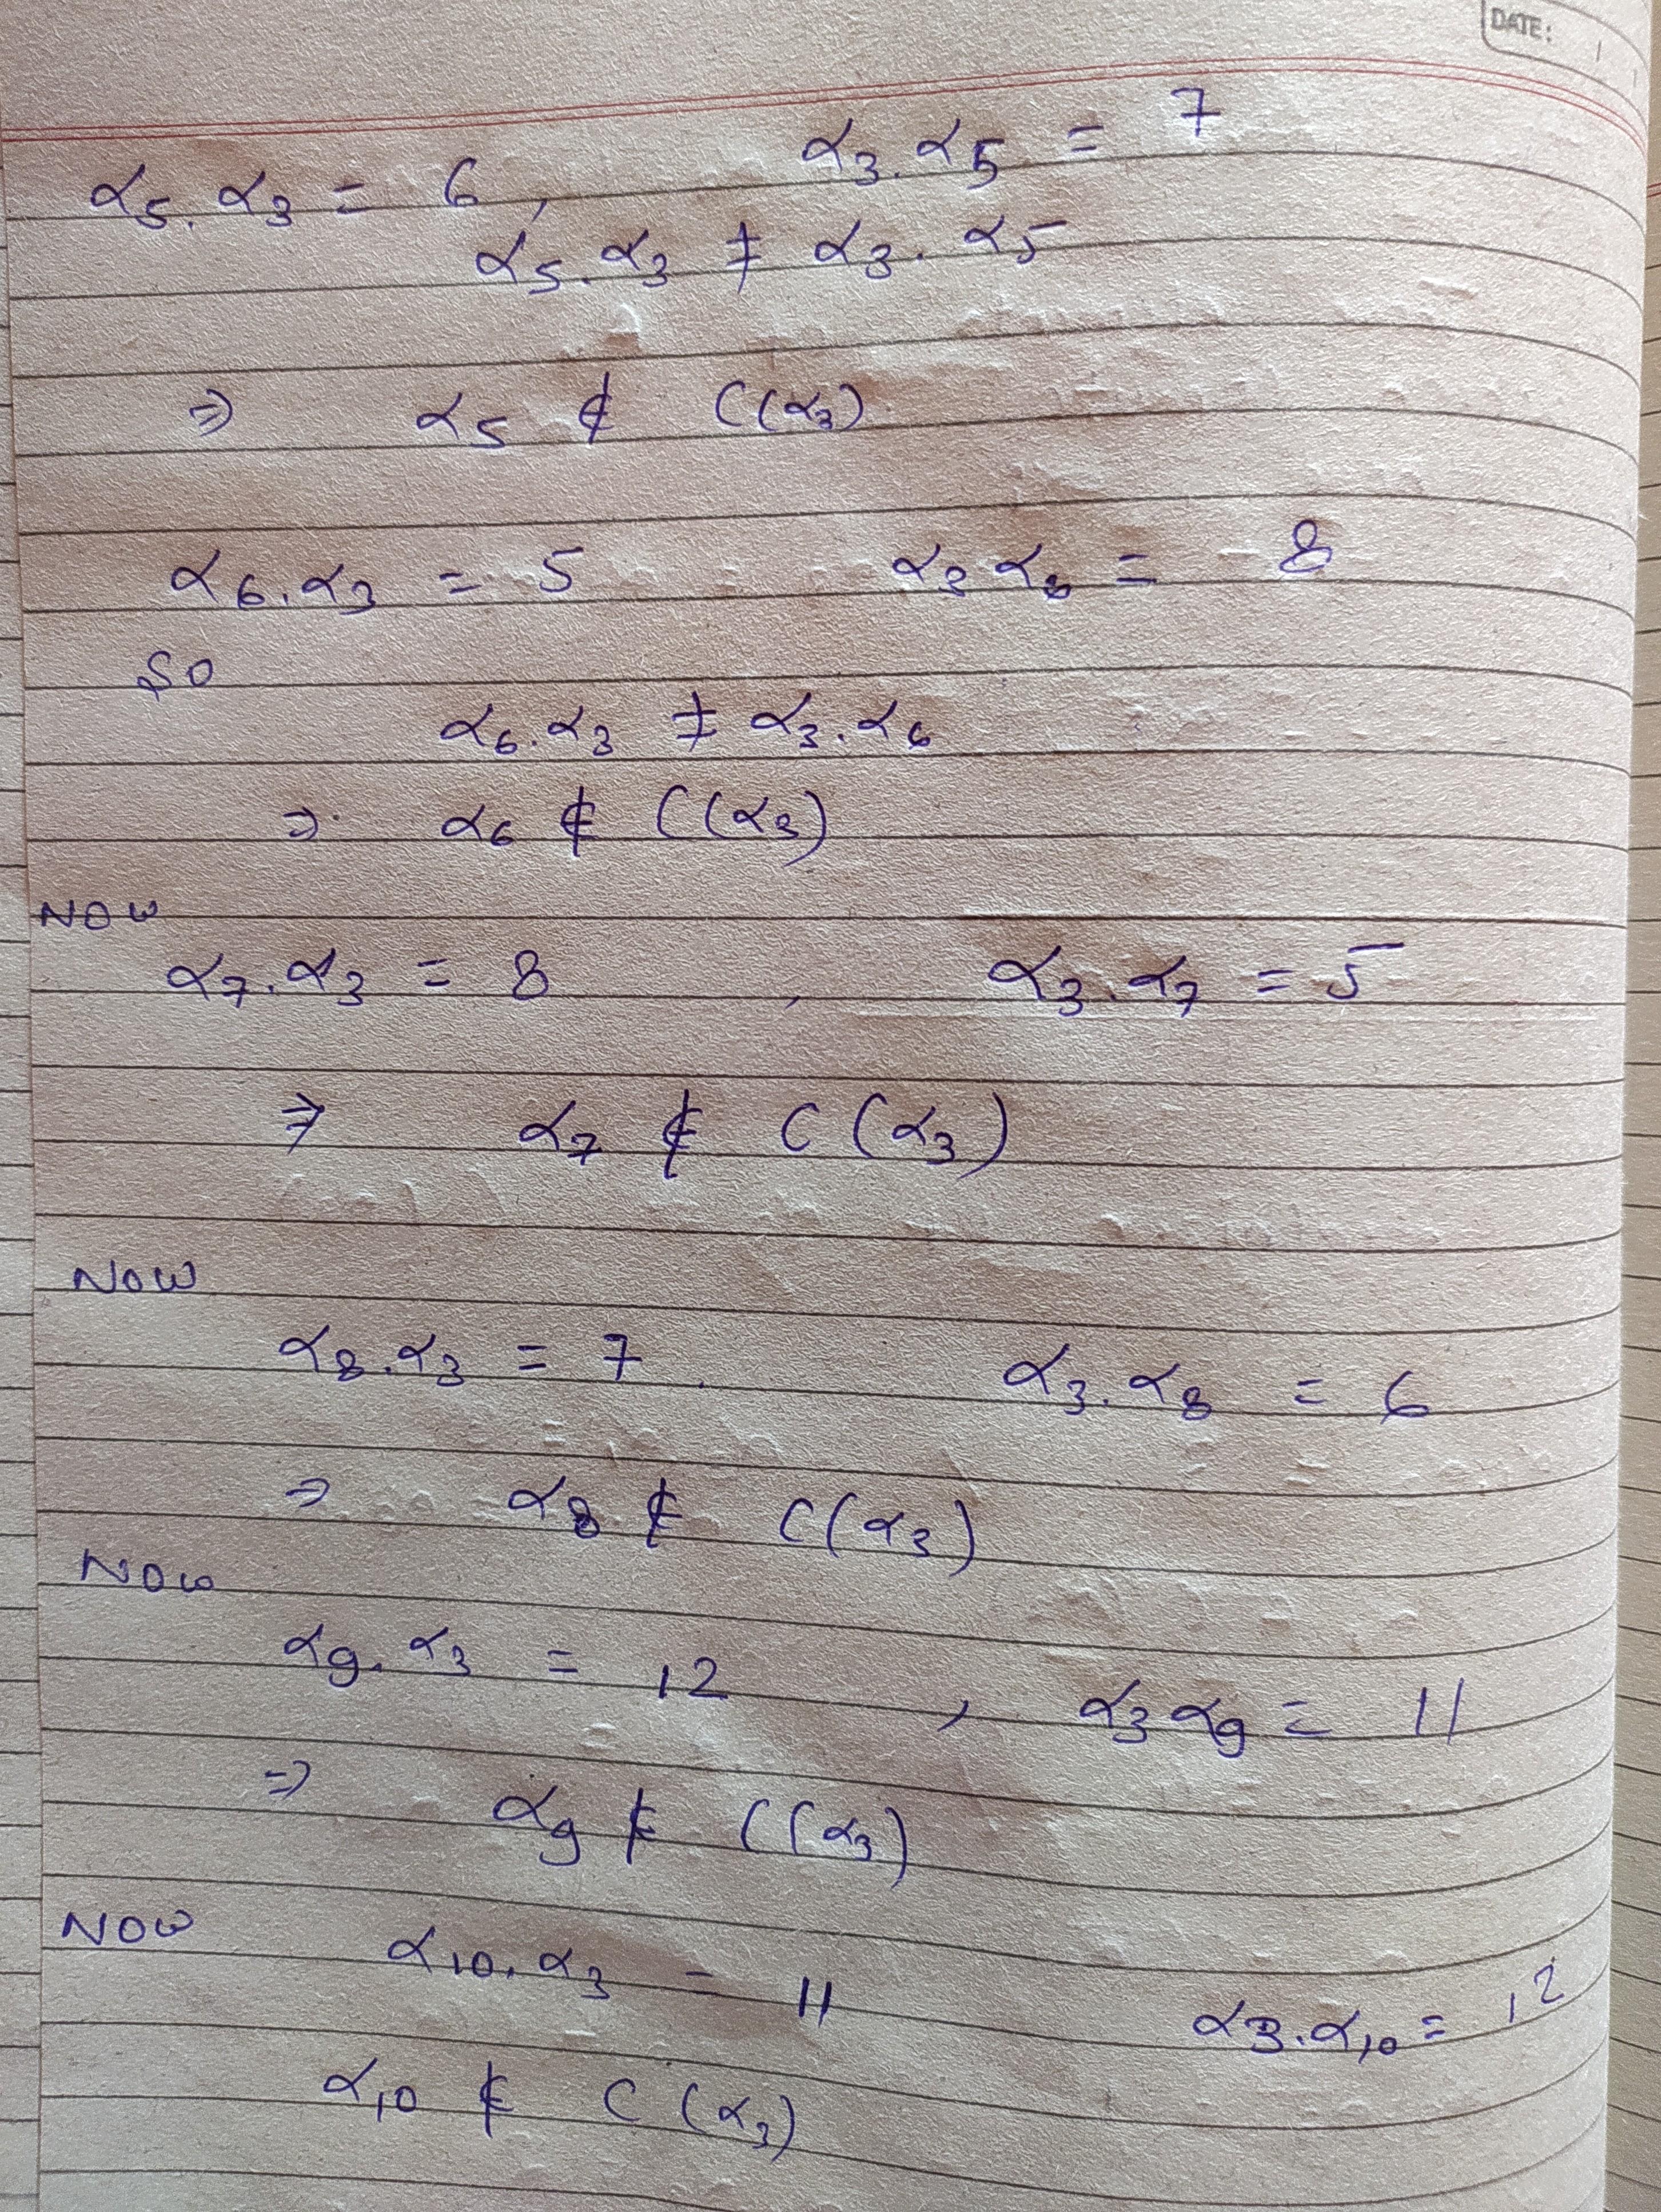 DATE:
α5.α3 = 6, α3.α5 = 7
α5.α3 ≠ α3.α5
⇒ α5 ∉ C(α3)
α6.α3 = 5 α3 α6 = 8
SO
α6.α3 ≠ α3.α6
⇒ α6 ∉ C(α3)
NOW
α7.α3 = 8 , α3.α7 = 5
⇒ α7 ∉ C(α3)
NOW
α8.α3 = 7. α3.α8 = 6
⇒ α8 ∉ C(α3)
NOW
α9.α3 = 12 , α3 α9 = 11
⇒ α9 ∉ C(α3)
NOW α10.α3 = 11 α3.α10 = 12
α10 ∉ C(α3)